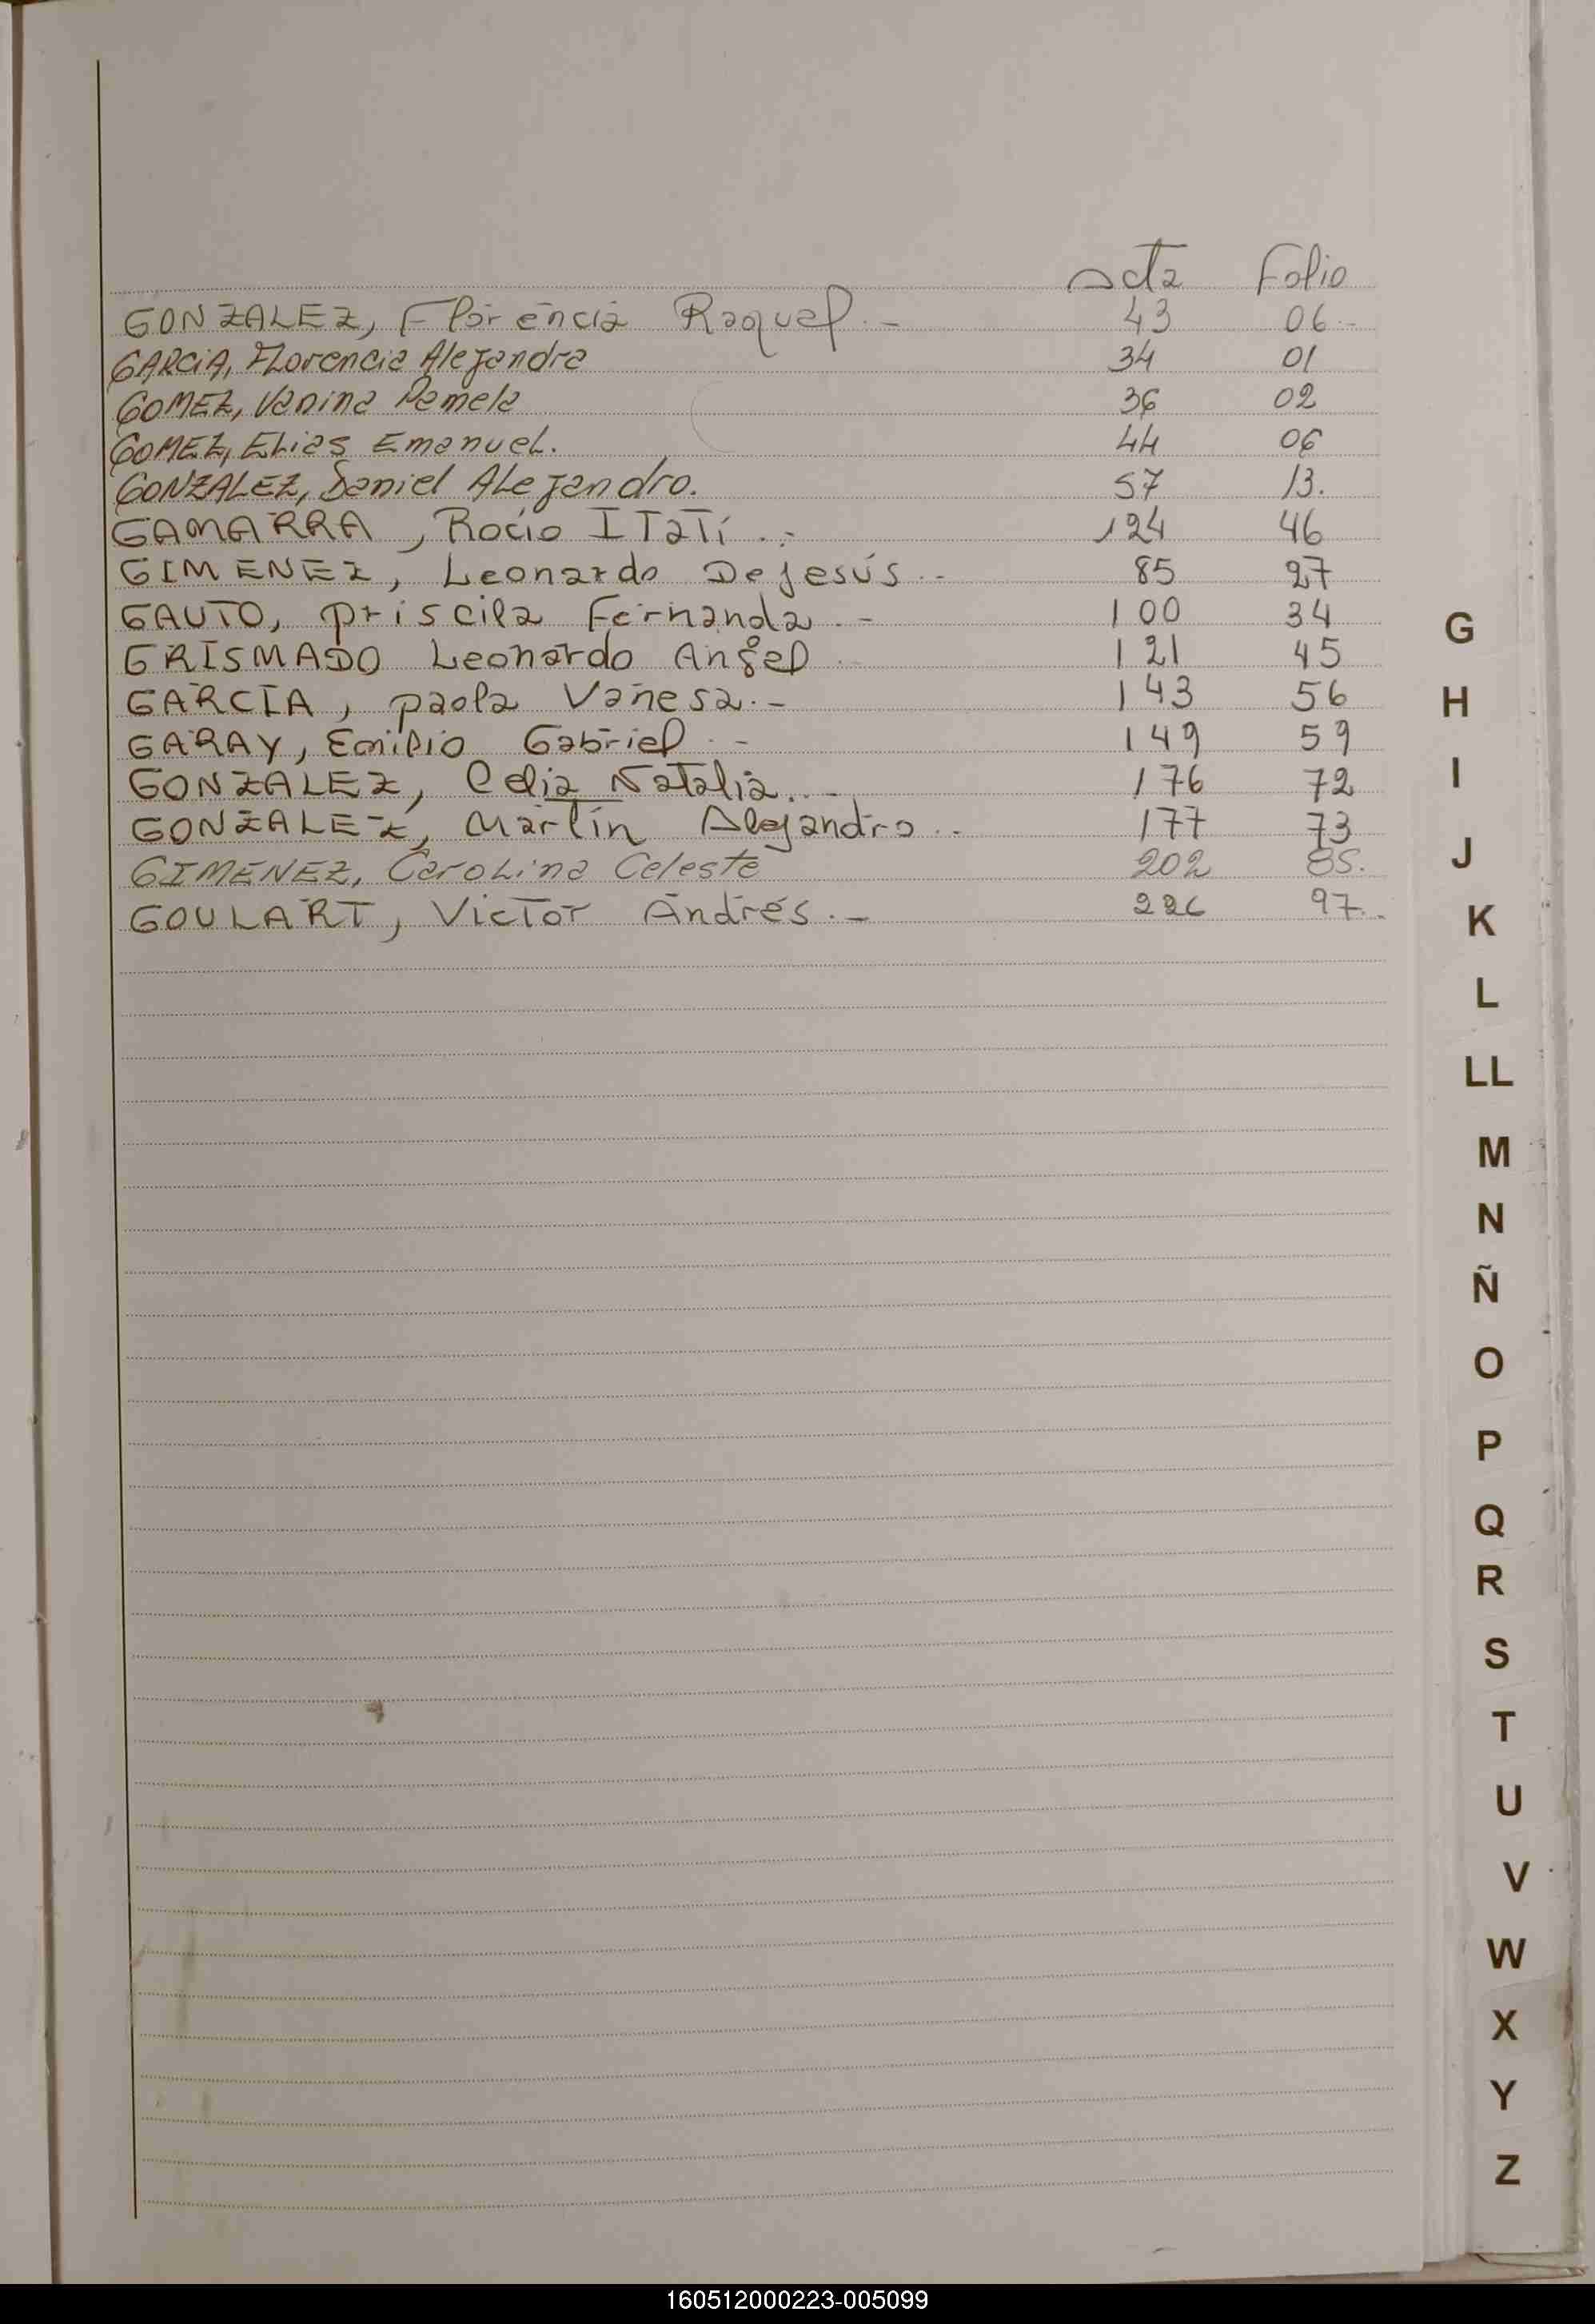 Acta Folio
GONZALEZ, Florencia Raquel.- 43 06.-
GARCIA, Florencia Alejandra 34 01
GOMEZ, Vanina Pamela 36 02
GOMEZ, Elias Emanuel. 44 06
GONZALEZ, Daniel Alejandro. 57 13.
GAMARRA, Rocio ITATí.- 124 46
GIMENEZ, Leonardo De Jesús.- 85 27
GAUTO, priscila Fernanda.- 100 34
GRISMADO Leonardo Angel 121 45
GARCÍA, paola Vanesa.- 143 56
GARAY, Emilio Gabriel.- 149 59
GONZALEZ, Celia Natalia.- 176 72
GONZALEZ, Martín Alejandro.- 177 73
GIMENEZ, Carolina Celeste 202 85.
GOULART, Victor Andrés.- 226 97.
G
H
I
J
K
L
LL
M
N
Ñ
O
P
Q
R
S
T
U
V
W
X
Y
Z
160512000223-005099